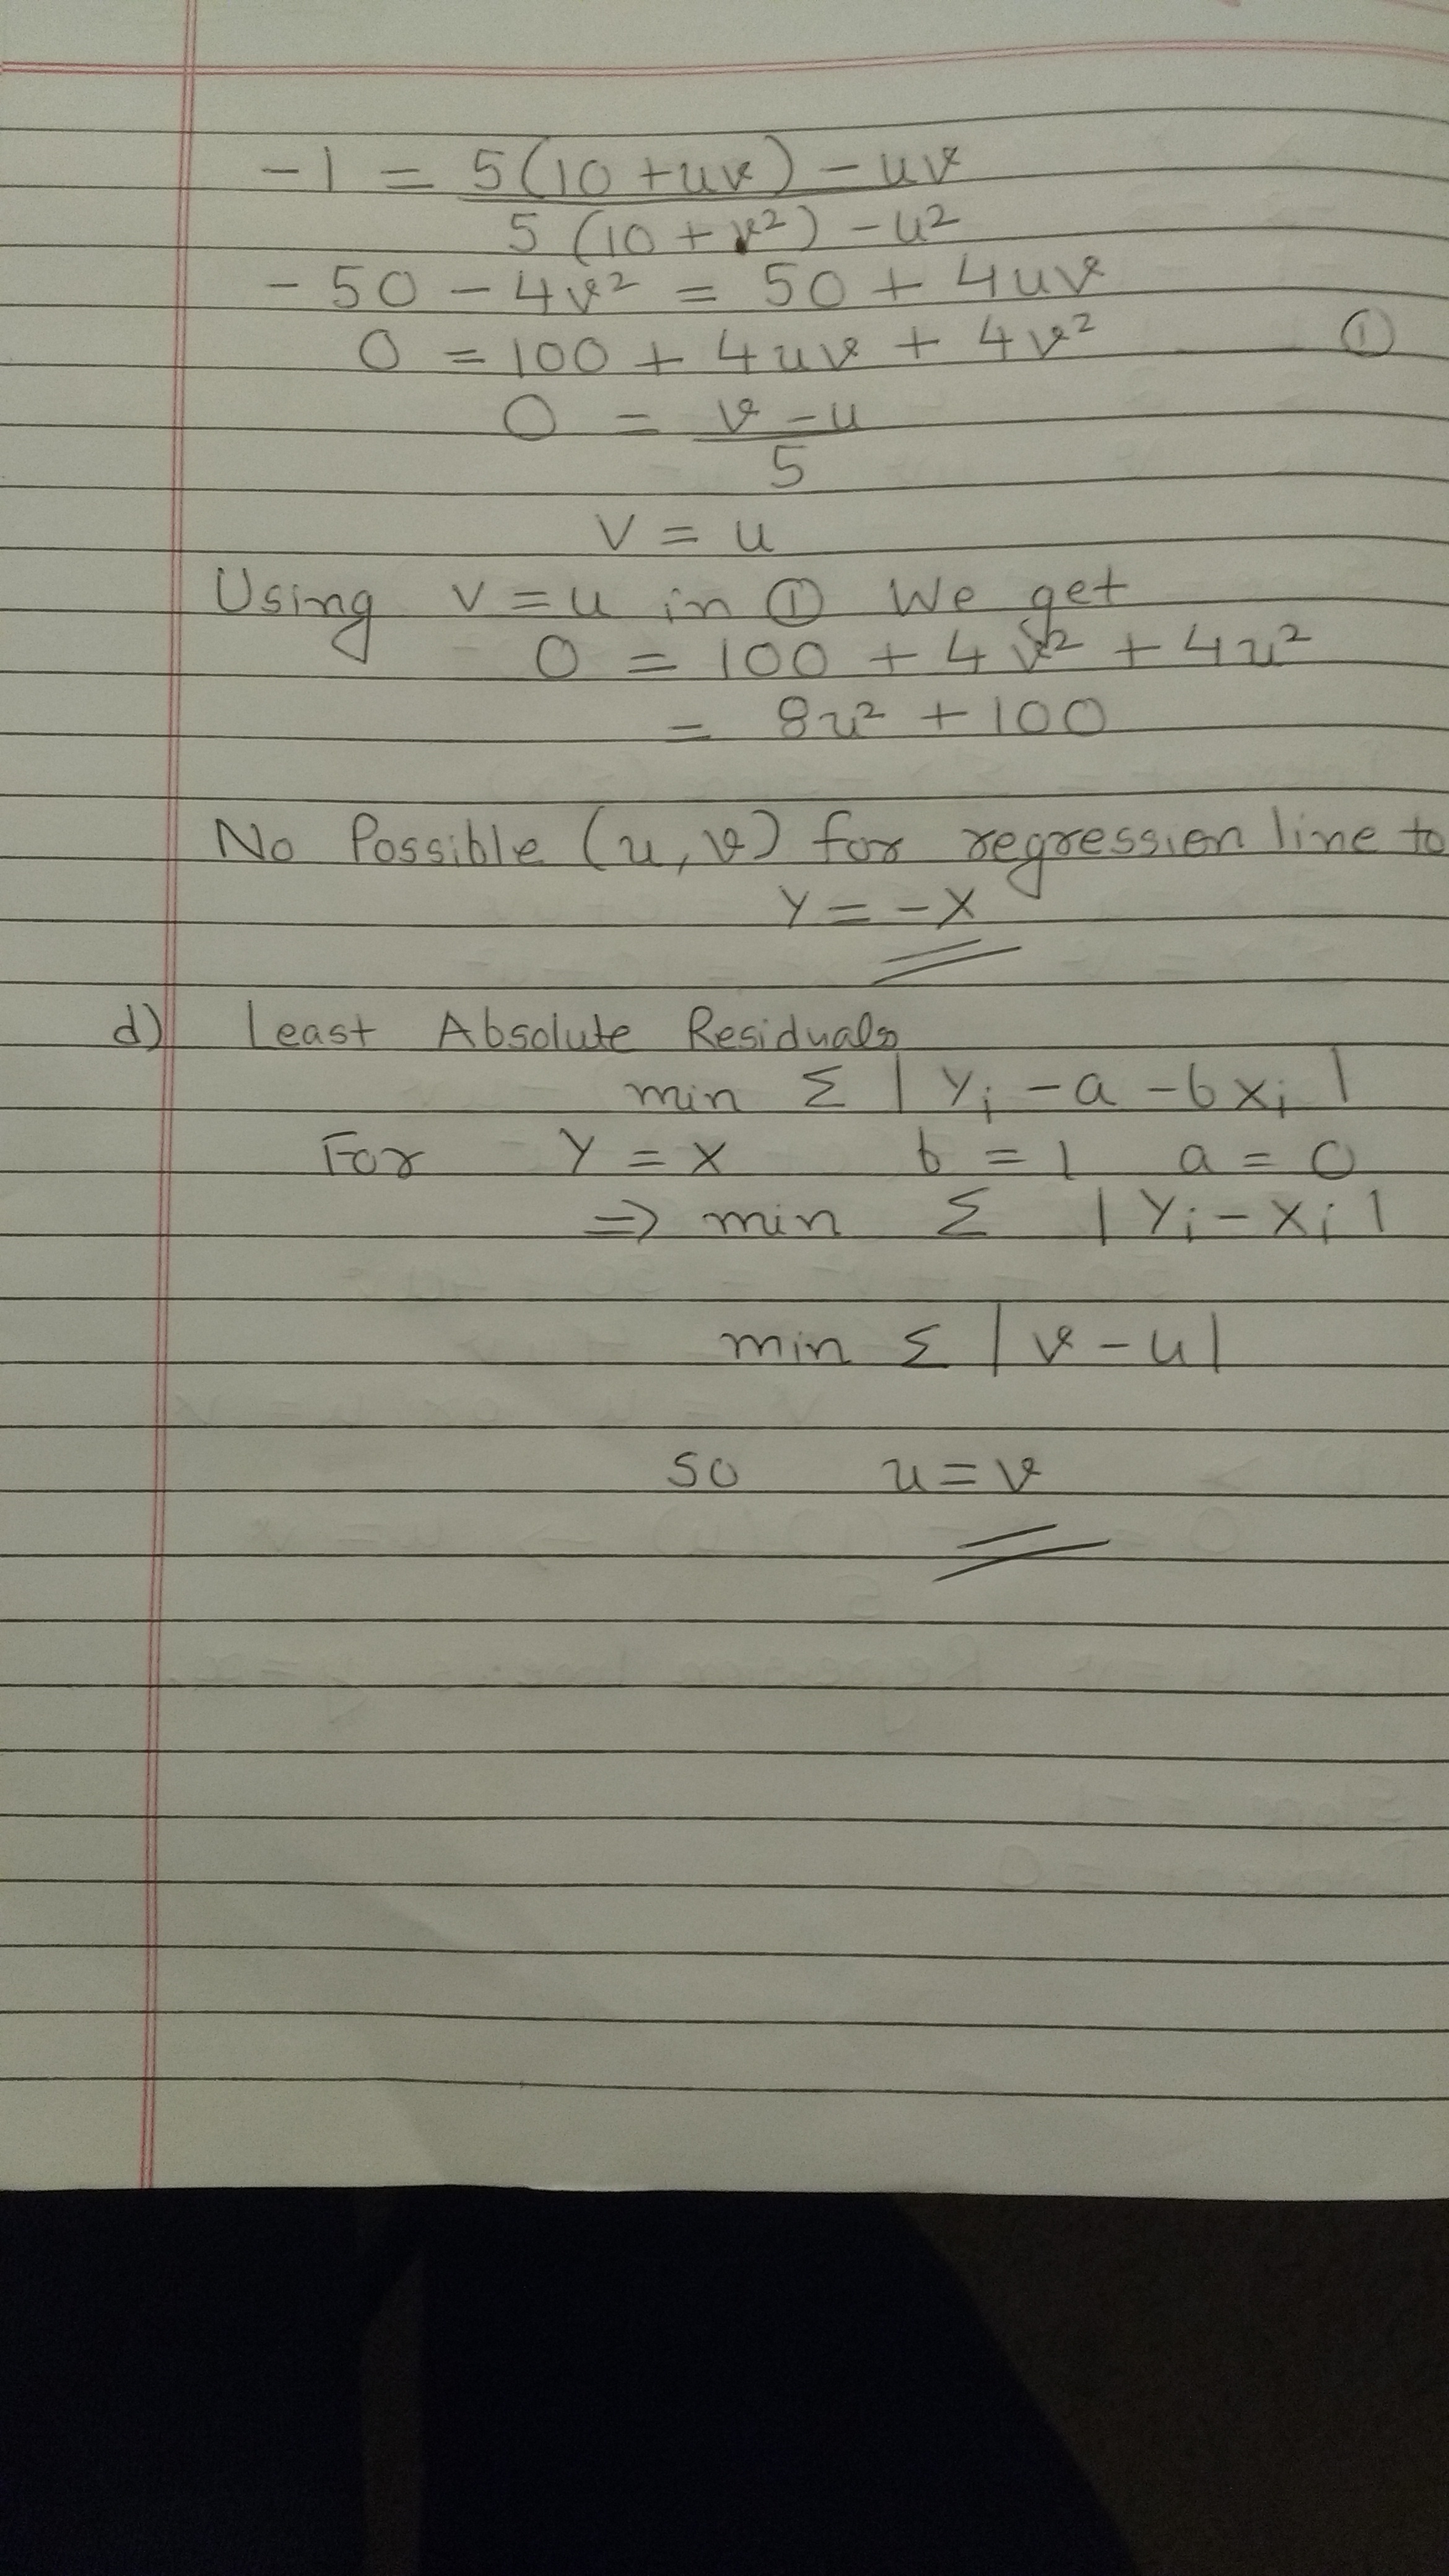 -1 = 5(10 + uv) - uv
5 (10 + v²) - u²
-50 - 4v² = 50 + 4uv
0 = 100 + 4uv + 4v² ①
0 = v - u
5
v = u
Using v = u in ① We get
0 = 100 + 4v² + 4u²
= 8u² + 100
No Possible (u, v) for regression line to
Y = -X
d) Least Absolute Residuals
min Σ | Yi - a - bxi |
For Y = X b = 1 a = 0
=> min Σ | Yi - Xi |
min Σ | v - u |
so u = v